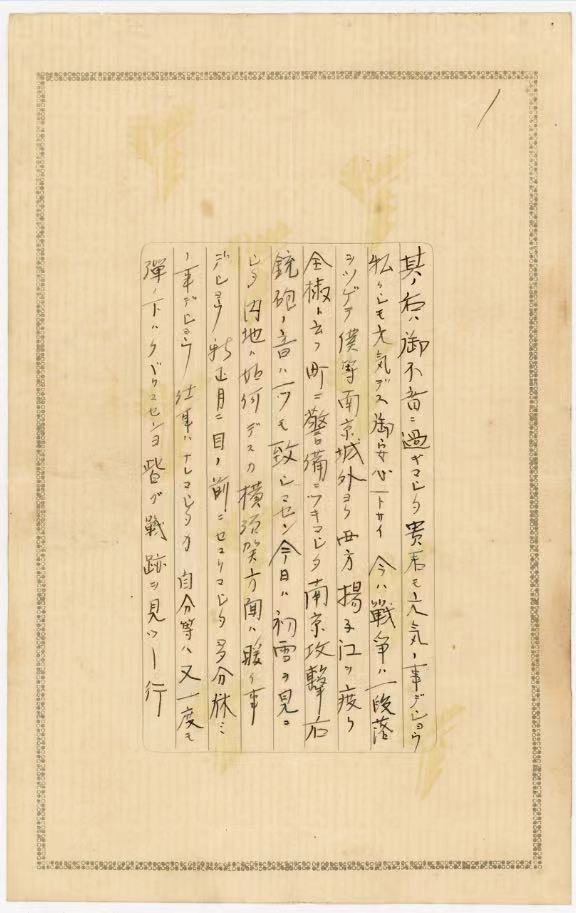 其ノ后ハ御不音ニ過ギマシタ貴君モ元気ノ事デショウ
私クシモ元気デス御安心下サイ 今ハ戦争ハ一段落
ヲツゲテ僕等南京城外ヨリ西方揚子江ヲ渡リ
全椒ト云フ町ニ警備ニツキマシタ南京攻撃后
銃砲ノ音ハ一ツモ致シマセン今日ハ初雪ヲ見マ
シタ内地ハ如何デスカ横須賀方面ハ暖イ事
デショウ 新正月ニ目ノ前ニセマリマシタ多分休ミ
ノ事デショウ 仕事ハナレマシタカ 自分等ハ又一度モ
弾ノ下ハクグリマセンヨ 皆ガ戦跡ヲ見ツヽ行